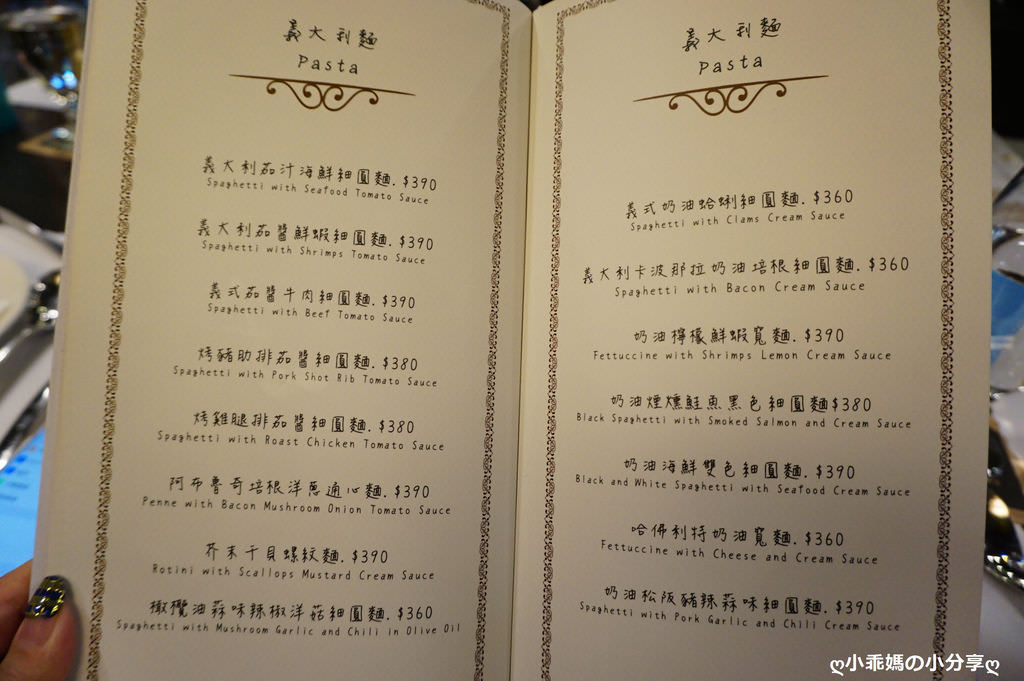 義大利麵
Pasta
義大利茄汁海鮮細圓麵. $390
Spaghetti with Seafood Tomato Sauce
義大利茄醬鮮蝦細圓麵. $390
Spaghetti with Shrimps Tomato Sauce
義式茄醬牛肉細圓麵. $390
Spaghetti with Beef Tomato Sauce
烤豬肋排茄醬細圓麵. $380
Spaghetti with Pork Shot Rib Tomato Sauce
烤雞腿排茄醬細圓麵. $380
Spaghetti with Roast Chicken Tomato Sauce
阿布魯奇培根洋蔥通心麵. $390
Penne with Bacon Mushroom Onion Tomato Sauce
芥末干貝螺紋麵. $390
Rotini with Scallops Mustard Cream Sauce
橄欖油蒜味辣椒洋菇細圓麵. $360
Spaghetti with Mushroom Garlic and Chili in Olive Oil
義大利麵
Pasta
義式奶油蛤蜊細圓麵. $360
Spaghetti with Clams Cream Sauce
義大利卡波那拉奶油培根細圓麵. $360
Spaghetti with Bacon Cream Sauce
奶油檸檬鮮蝦寬麵. $390
Fettuccine with Shrimps Lemon Cream Sauce
奶油煙燻鮭魚黑色細圓麵$380
Black Spaghetti with Smoked Salmon and Cream Sauce
奶油海鮮雙色細圓麵. $390
Black and White Spaghetti with Seafood Cream Sauce
哈佛利特奶油寬麵. $360
Fettuccine with Cheese and Cream Sauce
奶油松阪豬辣蒜味細圓麵. $390
Spaghetti with Pork Garlic and Chili Cream Sauce
ღ小乖媽の小分享ღ